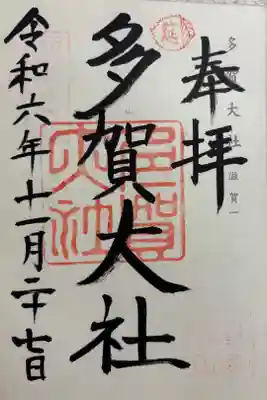 奉拝
多賀大社 滋賀一
延
多賀大社
多賀大社
令和六年十一月二十七日